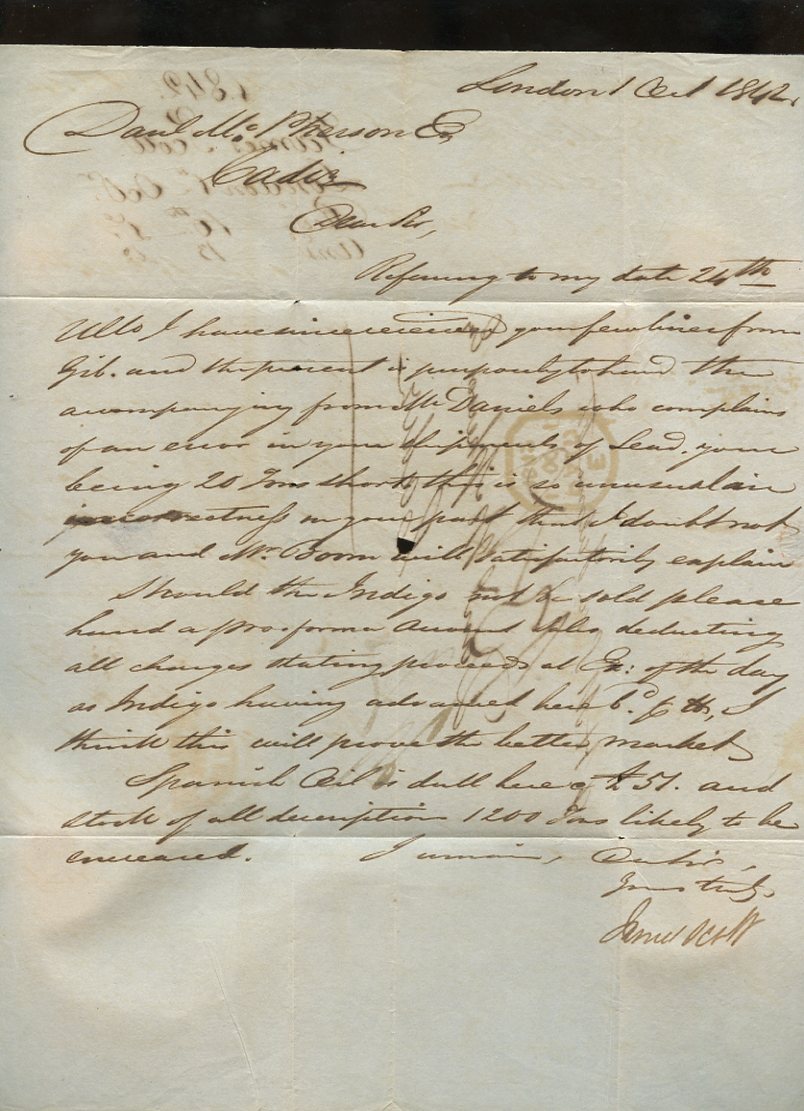 London 1 Oct 1842.
Danl. Mc.Pherson Esq
Cadiz
Dear Sir,
Referring to my date 24th
Ulto I have since received your few lines from
Gib. and the present is purposely to hand the
accompanying from Mr Daniels who complains
of an error in your shipments of Lead, your
being 20 Tons short, this is so unusual an
incorrectness on your part that I doubt not
you and Mr. Boom will satisfactorily explain
Should the Indigo not be sold please
hand a pro-forma Account Sales deducting
all charges stating proceeds at Ex: of the day
as Indigo having advanced here 6d. p lb, I
think this will prove the better market
Spanish Oil is dull here @ £51. and
stock of all descriptions 1200 Tons likely to be
encreased. I remain, Dear Sir,
Yours truly,
James Scott